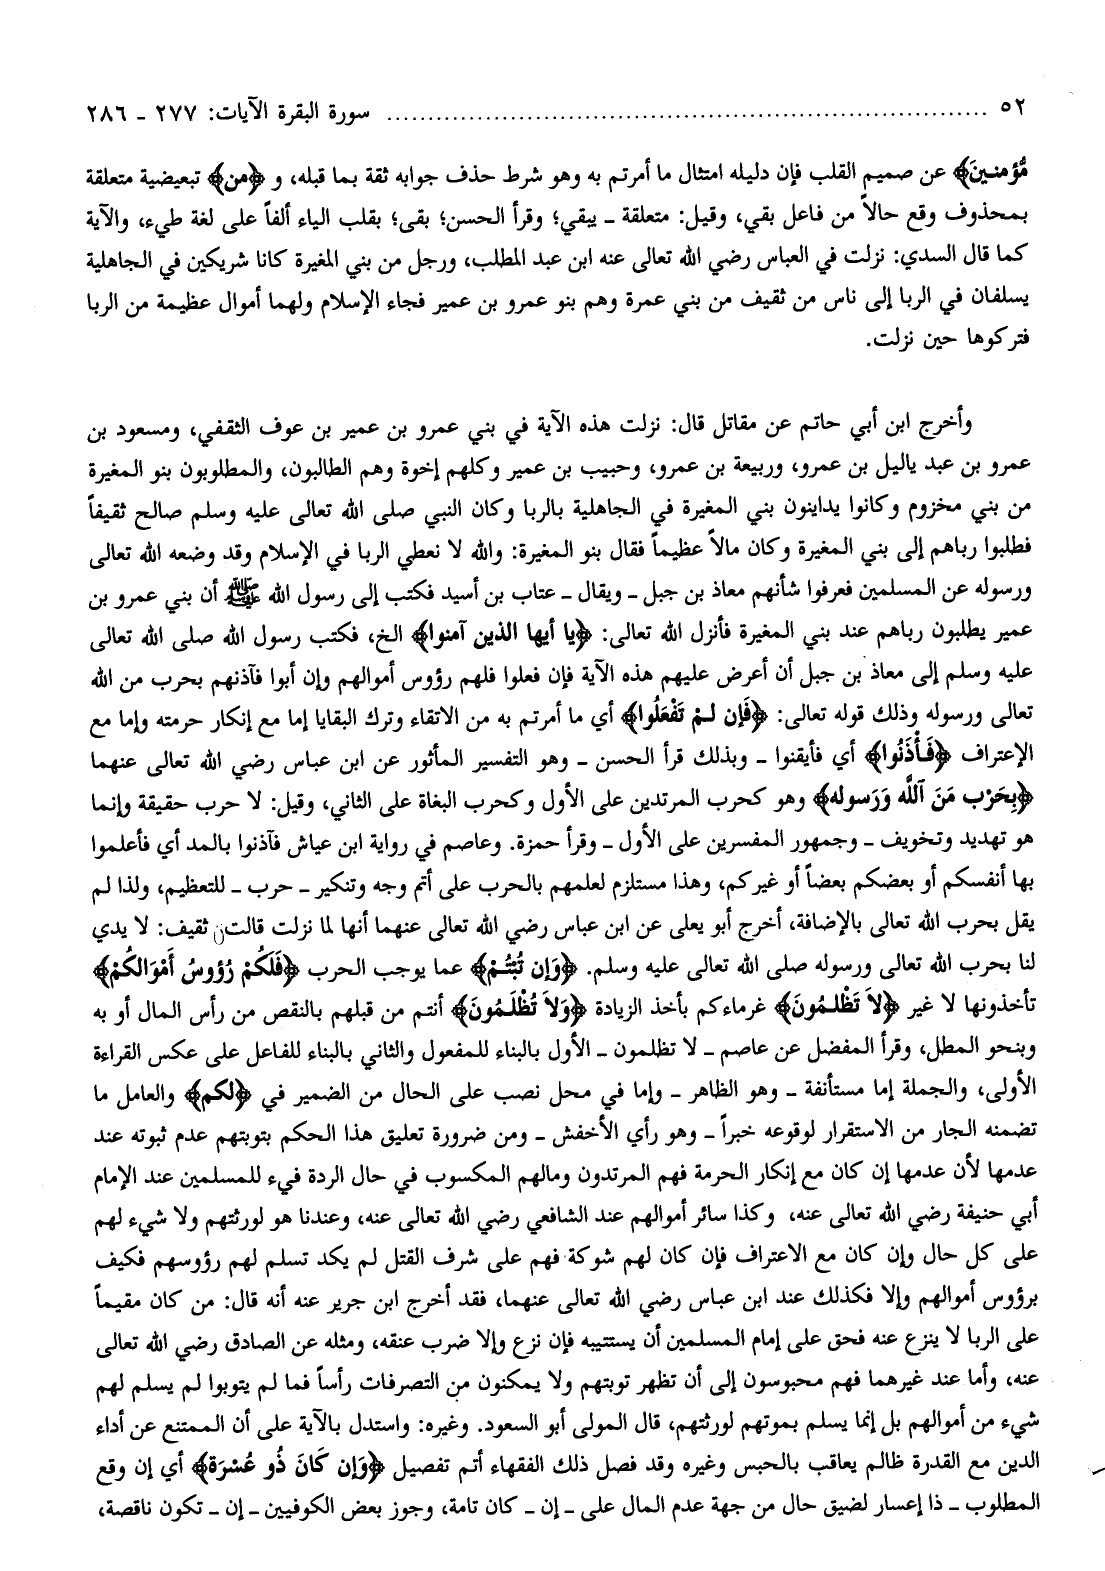 ٥٢ ........................................................................ سورة البقرة الآيات: ٢٧٧ ـ ٢٨٦
مُّؤمنـينَ﴾ عن صميم القلب فإن دليله امتثال ما أمرتم به وهو شرط حذف جوابه ثقة بما قبله، و ﴿من﴾ تبعيضية متعلقة
بمحذوف وقع حالاً من فاعل بقي، وقيل: متعلقة ـ يبقي؛ وقرأ الحسن؛ بقى؛ بقلب الياء ألفاً على لغة طيء، والآية
كما قال السدي: نزلت في العباس رضي الله تعالى عنه ابن عبد المطلب، ورجل من بني المغيرة كانا شريكين في الجاهلية
يسلفان في الربا إلى ناس من ثقيف من بني عمرة وهم بنو عمرو بن عمير فجاء الإسلام ولهما أموال عظيمة من الربا
فتركوها حين نزلت.
وأخرج ابن أبي حاتم عن مقاتل قال: نزلت هذه الآية في بني عمرو بن عمير بن عوف الثقفي، ومسعود بن
عمرو بن عبد ياليل بن عمرو، وربيعة بن عمرو، وحبيب بن عمير وكلهم إخوة وهم الطالبون، والمطلوبون بنو المغيرة
من بني مخزوم وكانوا يداينون بني المغيرة في الجاهلية بالربا وكان النبي صلى الله تعالى عليه وسلم صالح ثقيفاً
فطلبوا رباهم إلى بني المغيرة وكان مالاً عظيماً فقال بنو المغيرة: والله لا نعطي الربا في الإسلام وقد وضعه الله تعالى
ورسوله عن المسلمين فعرفوا شأنهم معاذ بن جبل ـ ويقال ـ عتاب بن أسيد فكتب إلى رسول الله ﷺ أن بني عمرو بن
عمير يطلبون رباهم عند بني المغيرة فأنزل الله تعالى: ﴿يا أيها الذين آمنوا﴾ الخ، فكتب رسول الله صلى الله تعالى
عليه وسلم إلى معاذ بن جبل أن أعرض عليهم هذه الآية فإن فعلوا فلهم رؤوس أموالهم وإن أبوا فآذنهم بحرب من الله
تعالى ورسوله وذلك قوله تعالى: ﴿فَإن لـمْ تَفْعَلُوا﴾ أي ما أمرتم به من الاتقاء وترك البقايا إما مع إنكار حرمته وإما مع
الإعتراف ﴿فَـأْذَنُوا﴾ أي فأيقنوا ـ وبذلك قرأ الحسن ـ وهو التفسير المأثور عن ابن عباس رضي الله تعالى عنهما
﴿بِحَرْب مَنَ ٱللَّه وَرَسوله﴾ وهو كحرب المرتدين على الأول وكحرب البغاة على الثاني، وقيل: لا حرب حقيقة وإنما
هو تهديد وتخويف ـ وجمهور المفسرين على الأول ـ وقرأ حمزة. وعاصم في رواية ابن عياش فآذنوا بالمد أي فأعلموا
بها أنفسكم أو بعضكم بعضاً أو غيركم، وهذا مستلزم لعلمهم بالحرب على أتم وجه وتنكير ـ حرب ـ للتعظيم، ولذا لم
يقل بحرب الله تعالى بالإضافة، أخرج أبو يعلى عن ابن عباس رضي الله تعالى عنهما أنها لما نزلت قالت ثقيف: لا يدي
لنا بحرب الله تعالى ورسوله صلى الله تعالى عليه وسلم. ﴿وَإن تُبْتُمْ﴾ عما يوجب الحرب ﴿فَلَكُمْ رُؤوسُ أمْوَالكُمْ﴾
تأخذونها لا غير ﴿لاَ تَظْلـمُونَ﴾ غرماءكم بأخذ الزيادة ﴿وَلاَ تُظْلَـمُونَ﴾ أنتم من قبلهم بالنقص من رأس المال أو به
وبنحو المطل، وقرأ المفضل عن عاصم ـ لا تظلمون ـ الأول بالبناء للمفعول والثاني بالبناء للفاعل على عكس القراءة
الأولى، والجملة إما مستأنفة ـ وهو الظاهر ـ وإما في محل نصب على الحال من الضمير في ﴿لكم﴾ والعامل ما
تضمنه الجار من الاستقرار لوقوعه خبراً ـ وهو رأي الأخفش ـ ومن ضرورة تعليق هذا الحكم بتوبتهم عدم ثبوته عند
عدمها لأن عدمها إن كان مع إنكار الحرمة فهم المرتدون ومالهم المكسوب في حال الردة فيء للمسلمين عند الإمام
أبي حنيفة رضي الله تعالى عنه، وكذا سائر أموالهم عند الشافعي رضي الله تعالى عنه، وعندنا هو لورثتهم ولا شيء لهم
على كل حال وإن كان مع الاعتراف فإن كان لهم شوكة فهم على شرف القتل لم يكد تسلم لهم رؤوسهم فكيف
برؤوس أموالهم وإلا فكذلك عند ابن عباس رضي الله تعالى عنهما، فقد أخرج ابن جرير عنه أنه قال: من كان مقيماً
على الربا لا ينزع عنه فحق على إمام المسلمين أن يستتيبه فإن نزع وإلا ضرب عنقه، ومثله عن الصادق رضي الله تعالى
عنه، وأما عند غيرهما فهم محبوسون إلى أن تظهر توبتهم ولا يمكنون من التصرفات رأساً فما لم يتوبوا لم يسلم لهم
شيء من أموالهم بل إنما يسلم بموتهم لورثتهم، قال المولى أبو السعود. وغيره: واستدل بالآية على أن الممتنع عن أداء
الدين مع القدرة ظالم يعاقب بالحبس وغيره وقد فصل ذلك الفقهاء أتم تفصيل ﴿وَإن كَانَ ذُو عُسْرَة﴾ أي إن وقع
المطلوب ـ ذا إعسار لضيق حال من جهة عدم المال على ـ إن ـ كان تامة، وجوز بعض الكوفيين ـ إن ـ تكون ناقصة،